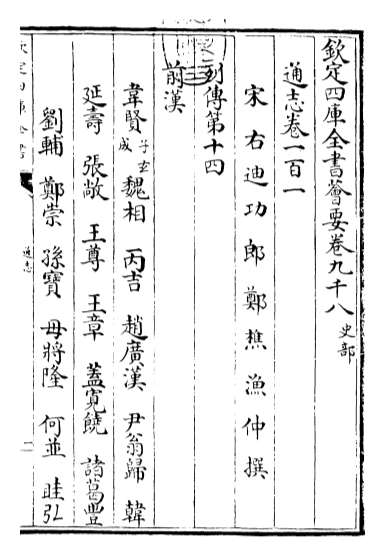 欽定四庫全書薈要卷九千八 史部
通志卷一百一
宋右迪功郎鄭樵漁仲撰
列傳第十四
前漢
韋賢 子玄成 魏相 丙吉 趙廣漢 尹翁歸 韓
延壽 張敞 王尊 王章 蓋寬饒 諸葛豐
劉輔 鄭崇 孫寶 毋將隆 何並 眭弘
欽定四庫全書
通志